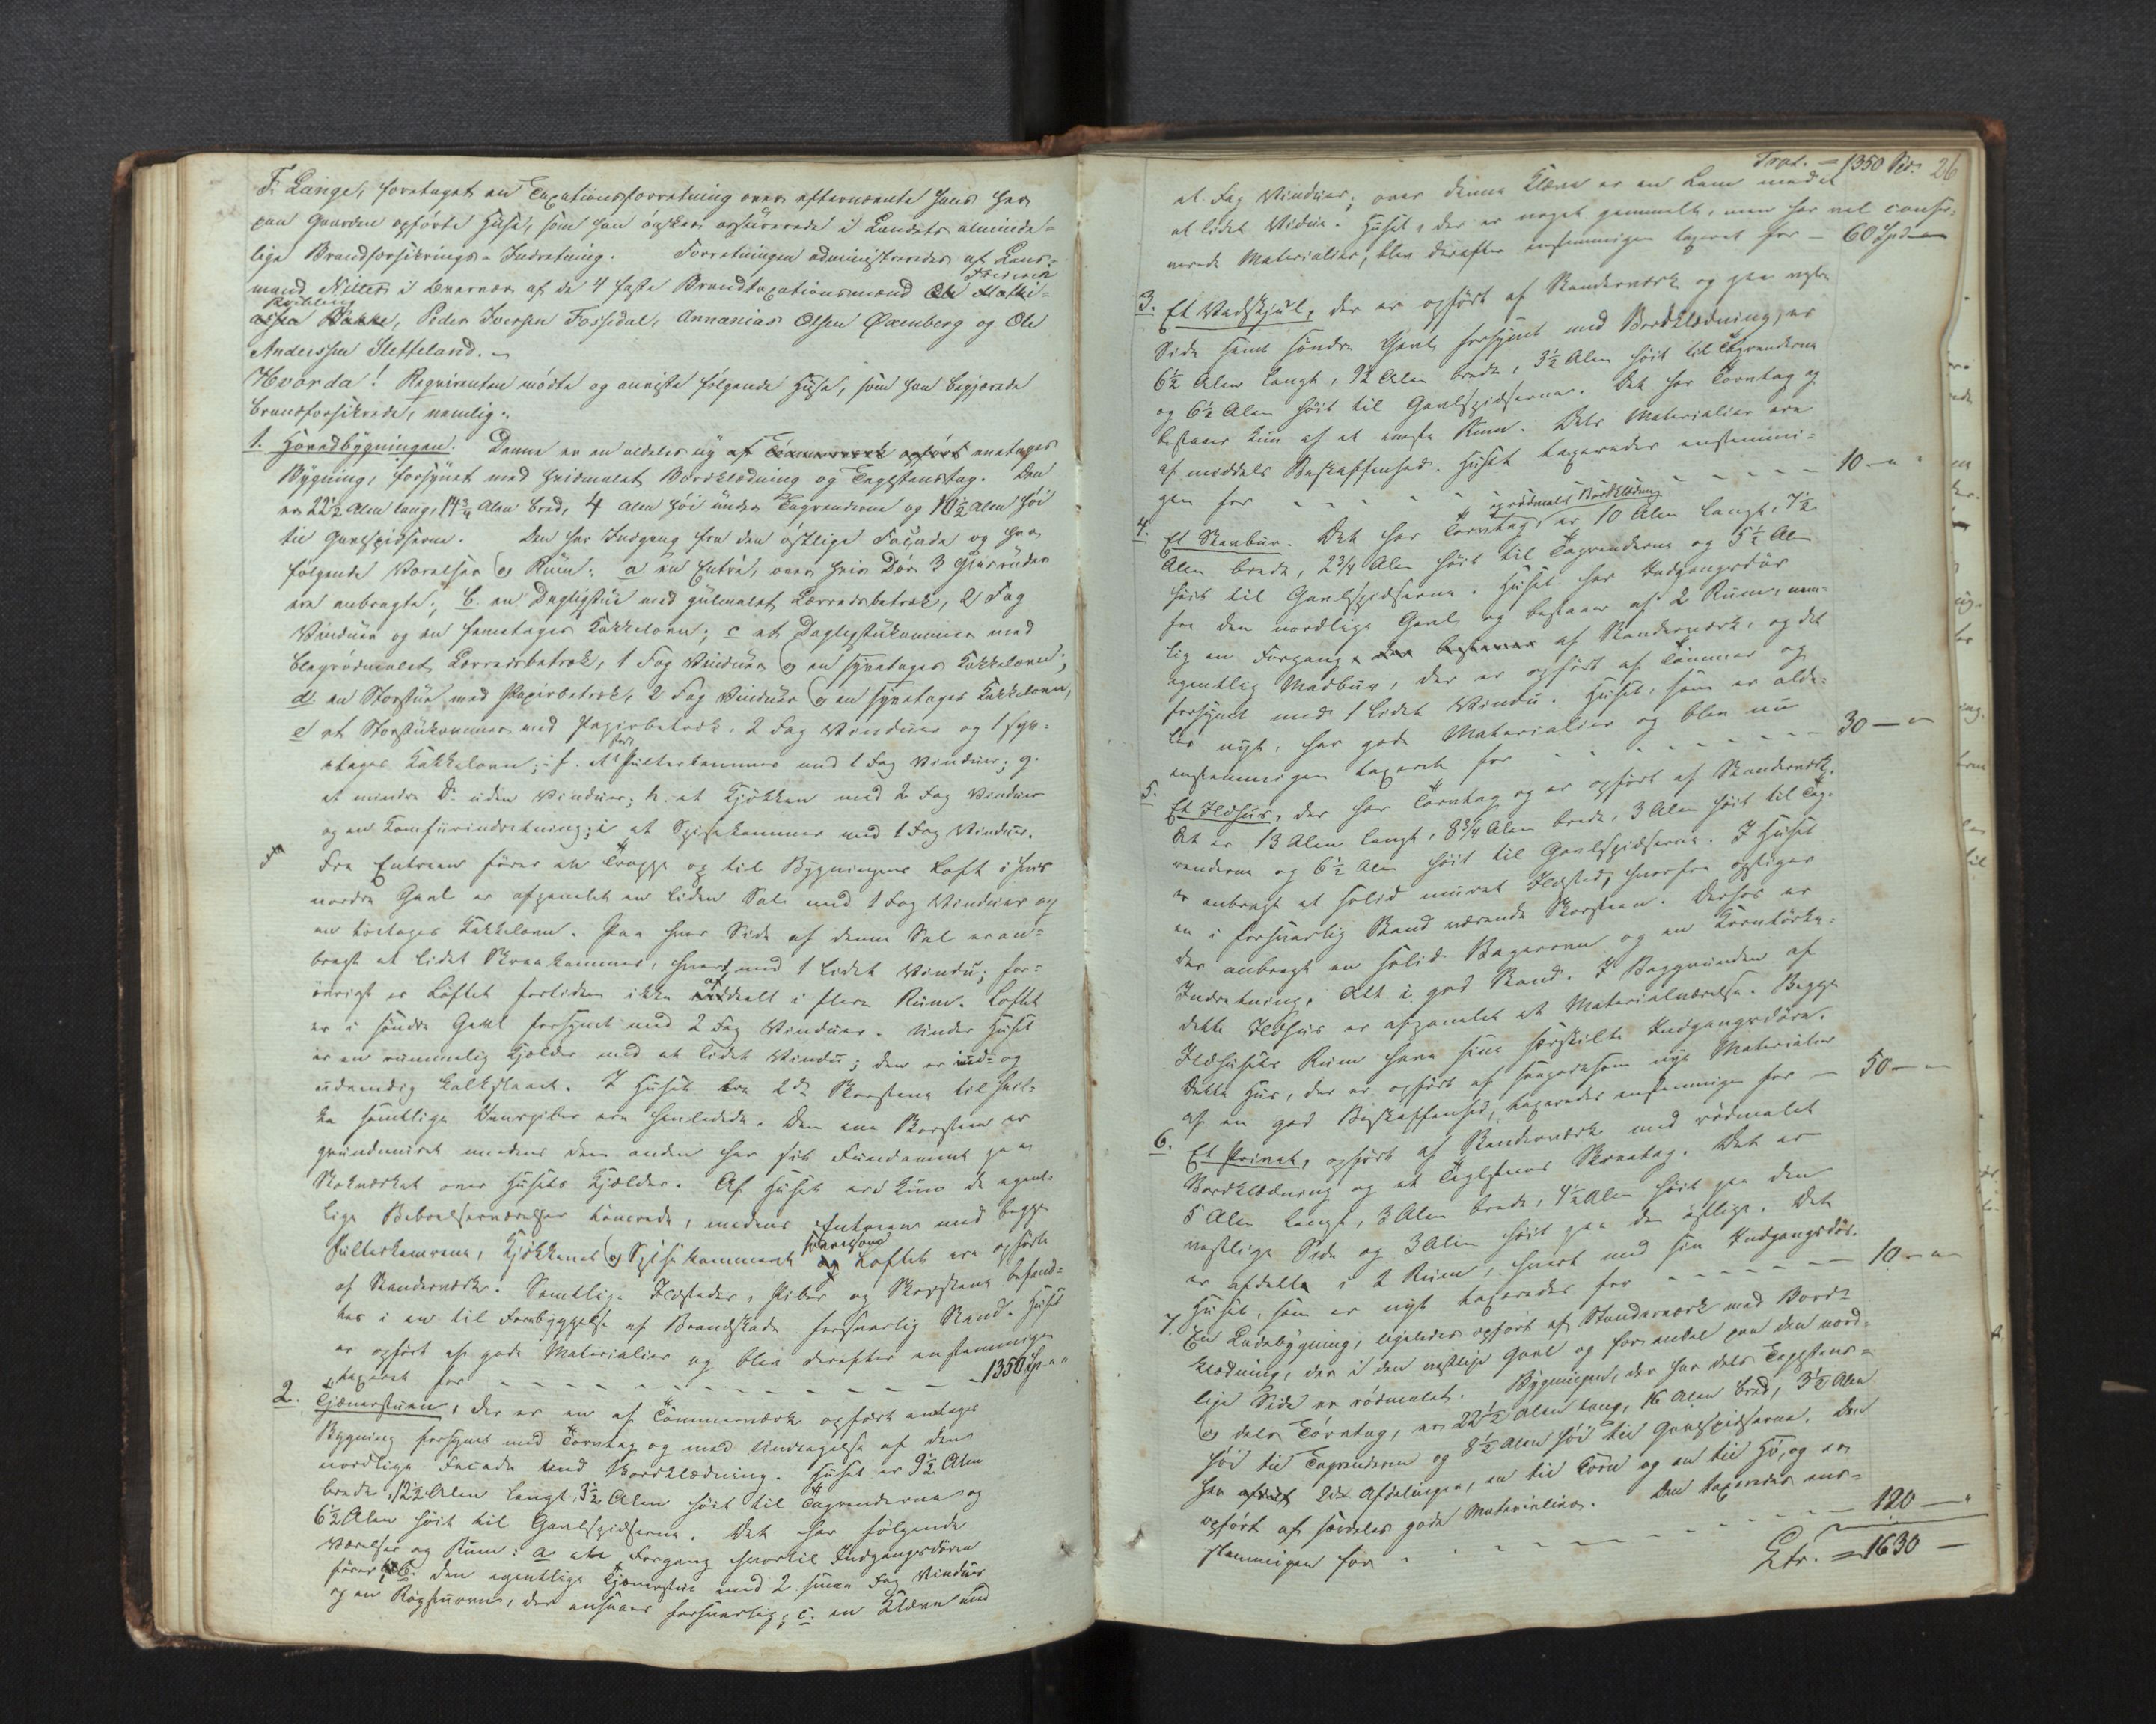 F. Lange, foretaget en Taxationsforretning over efternævnte Hans her
paa Gaarden opførte Huse, som han ønsker assurerede i Landets alminde-
lige Brandforsikrings-Indretning. Forretningen administreredes af Lens-
mand Nilles i Qværnæs af de 4 faste Brandtaxationsmænd Frederik
Peder Iversen Fossedal, Annanias Olsen Øxenberg og Ole
Anderssen Sletteland. -
Hvorda! Reqvirenten mødte og anviste følgende Huse, som han begjærede
brandforsikrede, nemlig:
1. Hovedbygningen. Denne er en aldeles ny af Tømmerverk opført eenetages
Bygning, forsynet med hvidmalet Bordklædning og Teglsteenstag. Den
er 22½ Alen lang, 14¾ Alen bred, 4 Alen høi under Tagrenderne og 10½ Alen høi
til Gavlspidserne. Den har Indgang fra den østlige Façade og har
følgende Værelser og Rum: a en Entré, over hvis Dør 3 Glasruder
ere anbragte; b. en Dagligstue med guulmalet Lærredsbetræk, 2 Fag
Vinduer og en femetages Kakkelovn; c et Dagligstukammer med
blegrødmalet Lærredsbetræk, 1 Fag Vinduer og en tyetages Kakkelovn;
d en Storstue med Papirbetræk, 2 Fag Vinduer og en tyetages Kakkelovn,
e et Storstukammer med Papirbetræk, 2 Fag Vinduer og 1
etages Kakkelovn; f. et stort Pulterkammer med 1 Fag Vinduer; g.
et mindre Do uden Vinduer; h. et Kjøkken med 2 Fag Vinduer
og en Komfurindretning; i et Spisekammer med 1 Fag Vinduer.
Fra Entreen fører en Trappe op til Bygningens Loft i hvis
nordre Gavl er afpanelet en liden Sal med 1 Fag Vinduer og
en toetages Kakkelovn. Paa hver Side af denne Sal er an-
bragt et lidet Skraakammer, hvert med 1 lidet Vindu; for-
øvrigt er Loftet fortiden ikke afdeelt i flere Rum. Loftet
er i søndre Gavl forsynet med 2 Fag Vinduer. Under Huset
er en rummelig Kjelder med et lidet Vindu; den er ind- og
udvendig kalkslaaet. I Huset ere 2de Skorstene til hvil-
ke samtlige Damrpiber ere henledede. Den ene Skorsteen er
grundmuret medens den anden har sit Fundament paa
Stokværket over Husets Kjelder. Af Huset ere kun de egent-
lige Beboelsesværelser tømrede, medens Entreen med begge
Pulterkamrene, Kjøkkenet og Spisekammeret Loftet ere opførte
af Standerværk. Samtlige Ildsteder, Piber og Skorstene befand-
tes i en til Forebyggelse af Brandskade forsvarlig Stand. Huset
er opført af gode Materialier og blev derefter enstemmigen
taxeret for - - - - - 1350 Sp
2. Tjenerstuen, der er en af Tømmerværk opført eenetages
Bygning forsynet med Torvtag og med Undtagelse af den
nordlige Facade med Bordklædning. Huset er 9½ Alen
bredt, 12½ Alen langt, 3½ Alen høit til Tagrenderne og
6½ Alen høit til Gavlspidserne. Det har følgende
Værelser og Rum: a en Forgang hvortil Indgangsdøren
fører; b. den egentlige Tjenerstue med 2 smaa Fag Vinduer
og en Røgsteenovn, der ansaaes forsvarlig; c. en Kleve med
Trat. - 1350 Spd. 26
et Fag Vinduer; over denne Kleve er en Lem med
et lidet Vindue. Huset, der er noget gammelt, men har vel conser-
verede Materialier, blev derefter enstemmigen taxeret for - 60 Spd
3. Et Vedskjul, der er opført af Standerværk og paa vestre
Side samt søndre Gavl forsynet med Bordklædning, er
6½ Alen langt, 9½ Alen bredt, 3½ Alen høit til Tagrenderne
og 6½ Alen høit til Gavlspidserne. Det har Torvtag og
bestaaer kun af et eneste Rum. Dets Materialier ere
af middels Beskaffenhed. Huset taxeredes enstemmi-
gen for - - - - - 10 - "
4. Et Stavbur. Det har Torvtag og rødmalet Bordklædning, er 10 Alen langt, 7½
Alen bredt, 2¾ Alen høit til Tagrenderne og 5½ Alen
høit til Gavlspidserne. Huset har Indgangsdør
fra den nordlige Gavl og bestaaer af 2 Rum, nem-
lig en Forgang, der bestaaer af Standerværk, og det
egentlig Madbur, der er opført af Tømmer og
forsynet med 1 lidet Vindu. Huset, som er alde-
les nyt, har gode Materialier og blev nu
enstemmigen taxeret for - - - - 30 - "
5. Et Ildhus, der har Torvtag og er opført af Standerværk.
Det er 13 Alen langt, 8¾ Alen bredt, 3 Alen høit til Tag-
renderne og 6½ Alen høit til Gavlspidserne. I Huset
er anbragt et solid muret Ildsted, hvorfra opstiger
en i forsvarlig Stand værende Skorsteen. Derhos er
der anbragt en solid Bagerovn og en Korntørke-
Indretning, Alt i god Stand. I Baggrunden af
dette Ildhus er afpanelet et Materialværelse. Begge
Ildhusets Rum have sine særskilte Indgangsdøre.
Dette Huus, der er opført af saagodtsom nye Materialier
af en god Beskaffenhed, taxeredes enstemmigen for - 50 - "
6. Et Privet, opført af Standerværk med rødmalet
Bordklædning og et Teglsteens Skraatag. Det er
5 Alen langt, 3 Alen bredt, 4½ Alen høit paa den
vestlige Side og 3 Alen høit paa den østlige. Det
er afdeelt i 2 Rum, hvert med sin Indgangsdør.
Huset, som er nyt taxeredes for - - - - 10 - "
7. En Ladebygning, ligeledes opført af Standerværk med Bord-
klædning, der i den vestlige Gavl og forenkel paa den nord-
lige Side er rødmalet. Bygningen, der har dels Teglsteens-
og dels Torvtag, er 22½ Alen lang, 16 Alen bred, 3½ Alen
høi til Tagrenderne og 8½ Alen høi til Gavlspidserne. Den
har 2de Afdelinger, en til Korn og en til Hø, og er
opført af særdeles gode Materialier. Den taxeredes en-
stemmigen for - - - - 120 - "
Ltr. = 1630 -